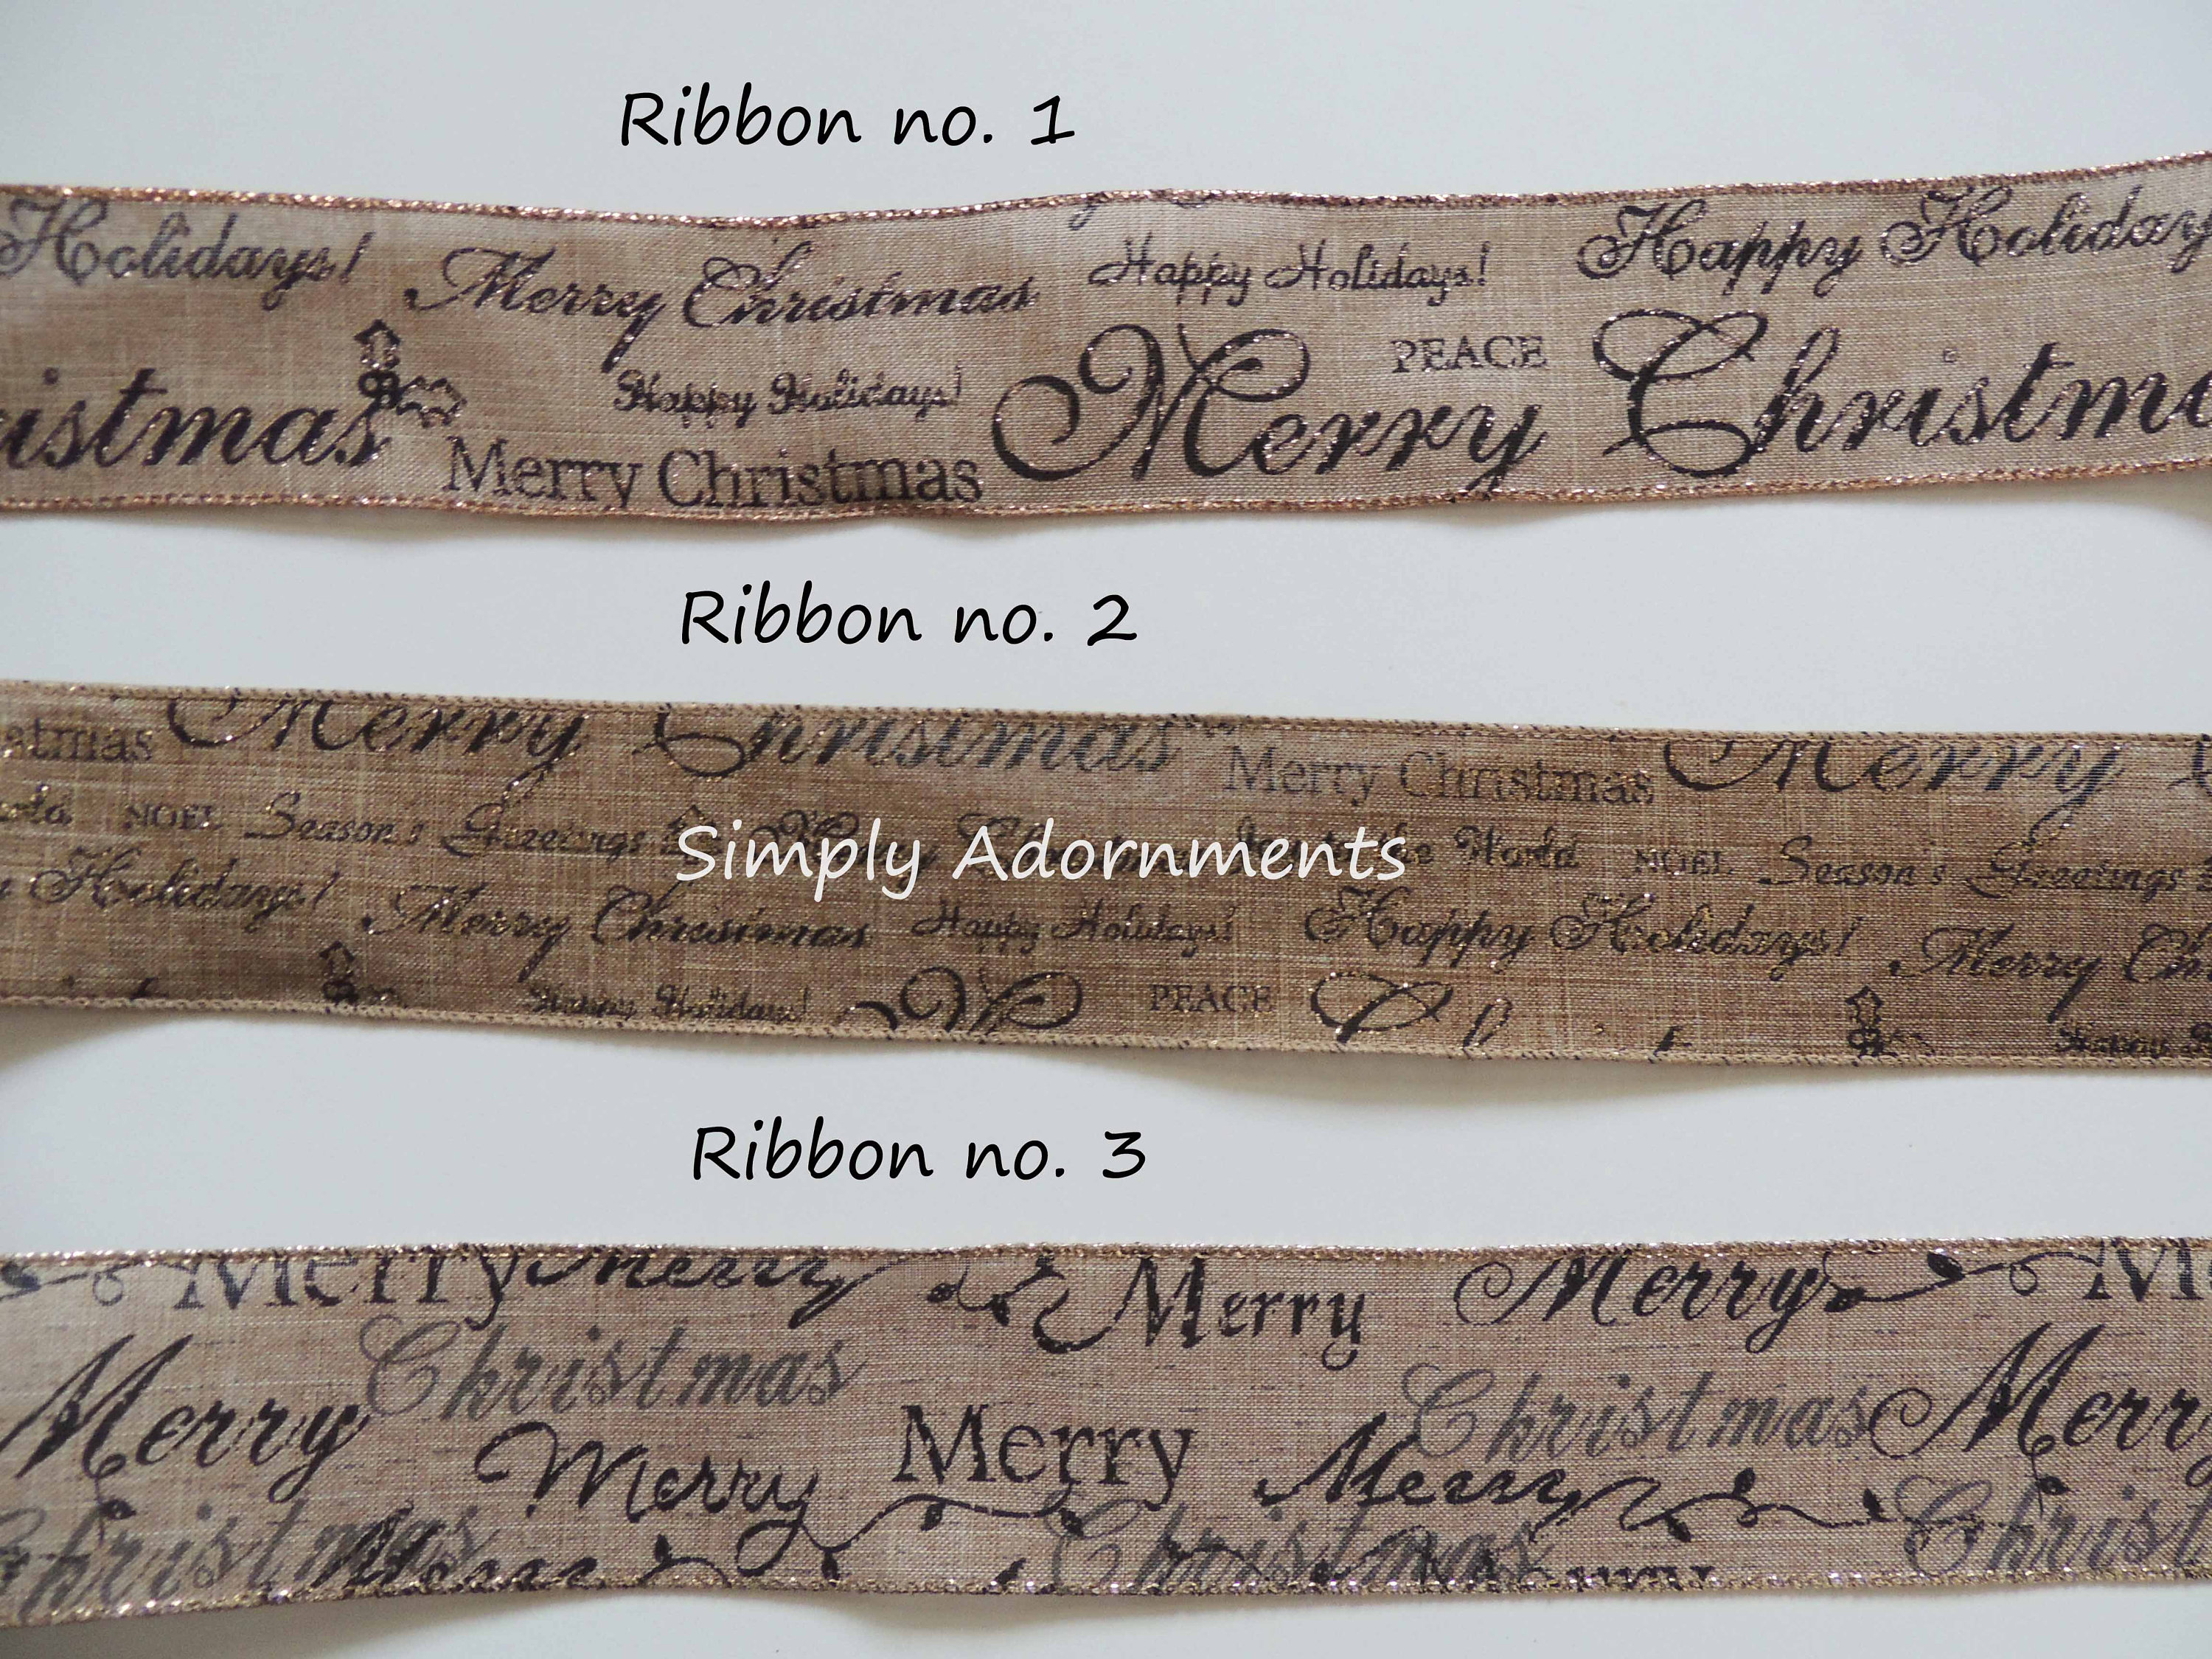 Ribbon no. 1
Holidays! Merry Christmas Happy Holidays! Happy Holiday
istmas Happy Holidays! Merry PEACE Christma
Merry Christmas
Ribbon no. 2
stmas Merry Christmas Merry Christmas Merry
NOEL Season's Greetings the World NOEL Season's Greetings
Simply Adornments
Holidays! Merry Christmas Happy Holidays! Happy Holidays! Merry Ch
Happy Holidays! PEACE
Ribbon no. 3
Merry Merry Merry Merry M
Merry Christmas Christmas Merr
Merry Merry Merry
Christmas Christmas Christ